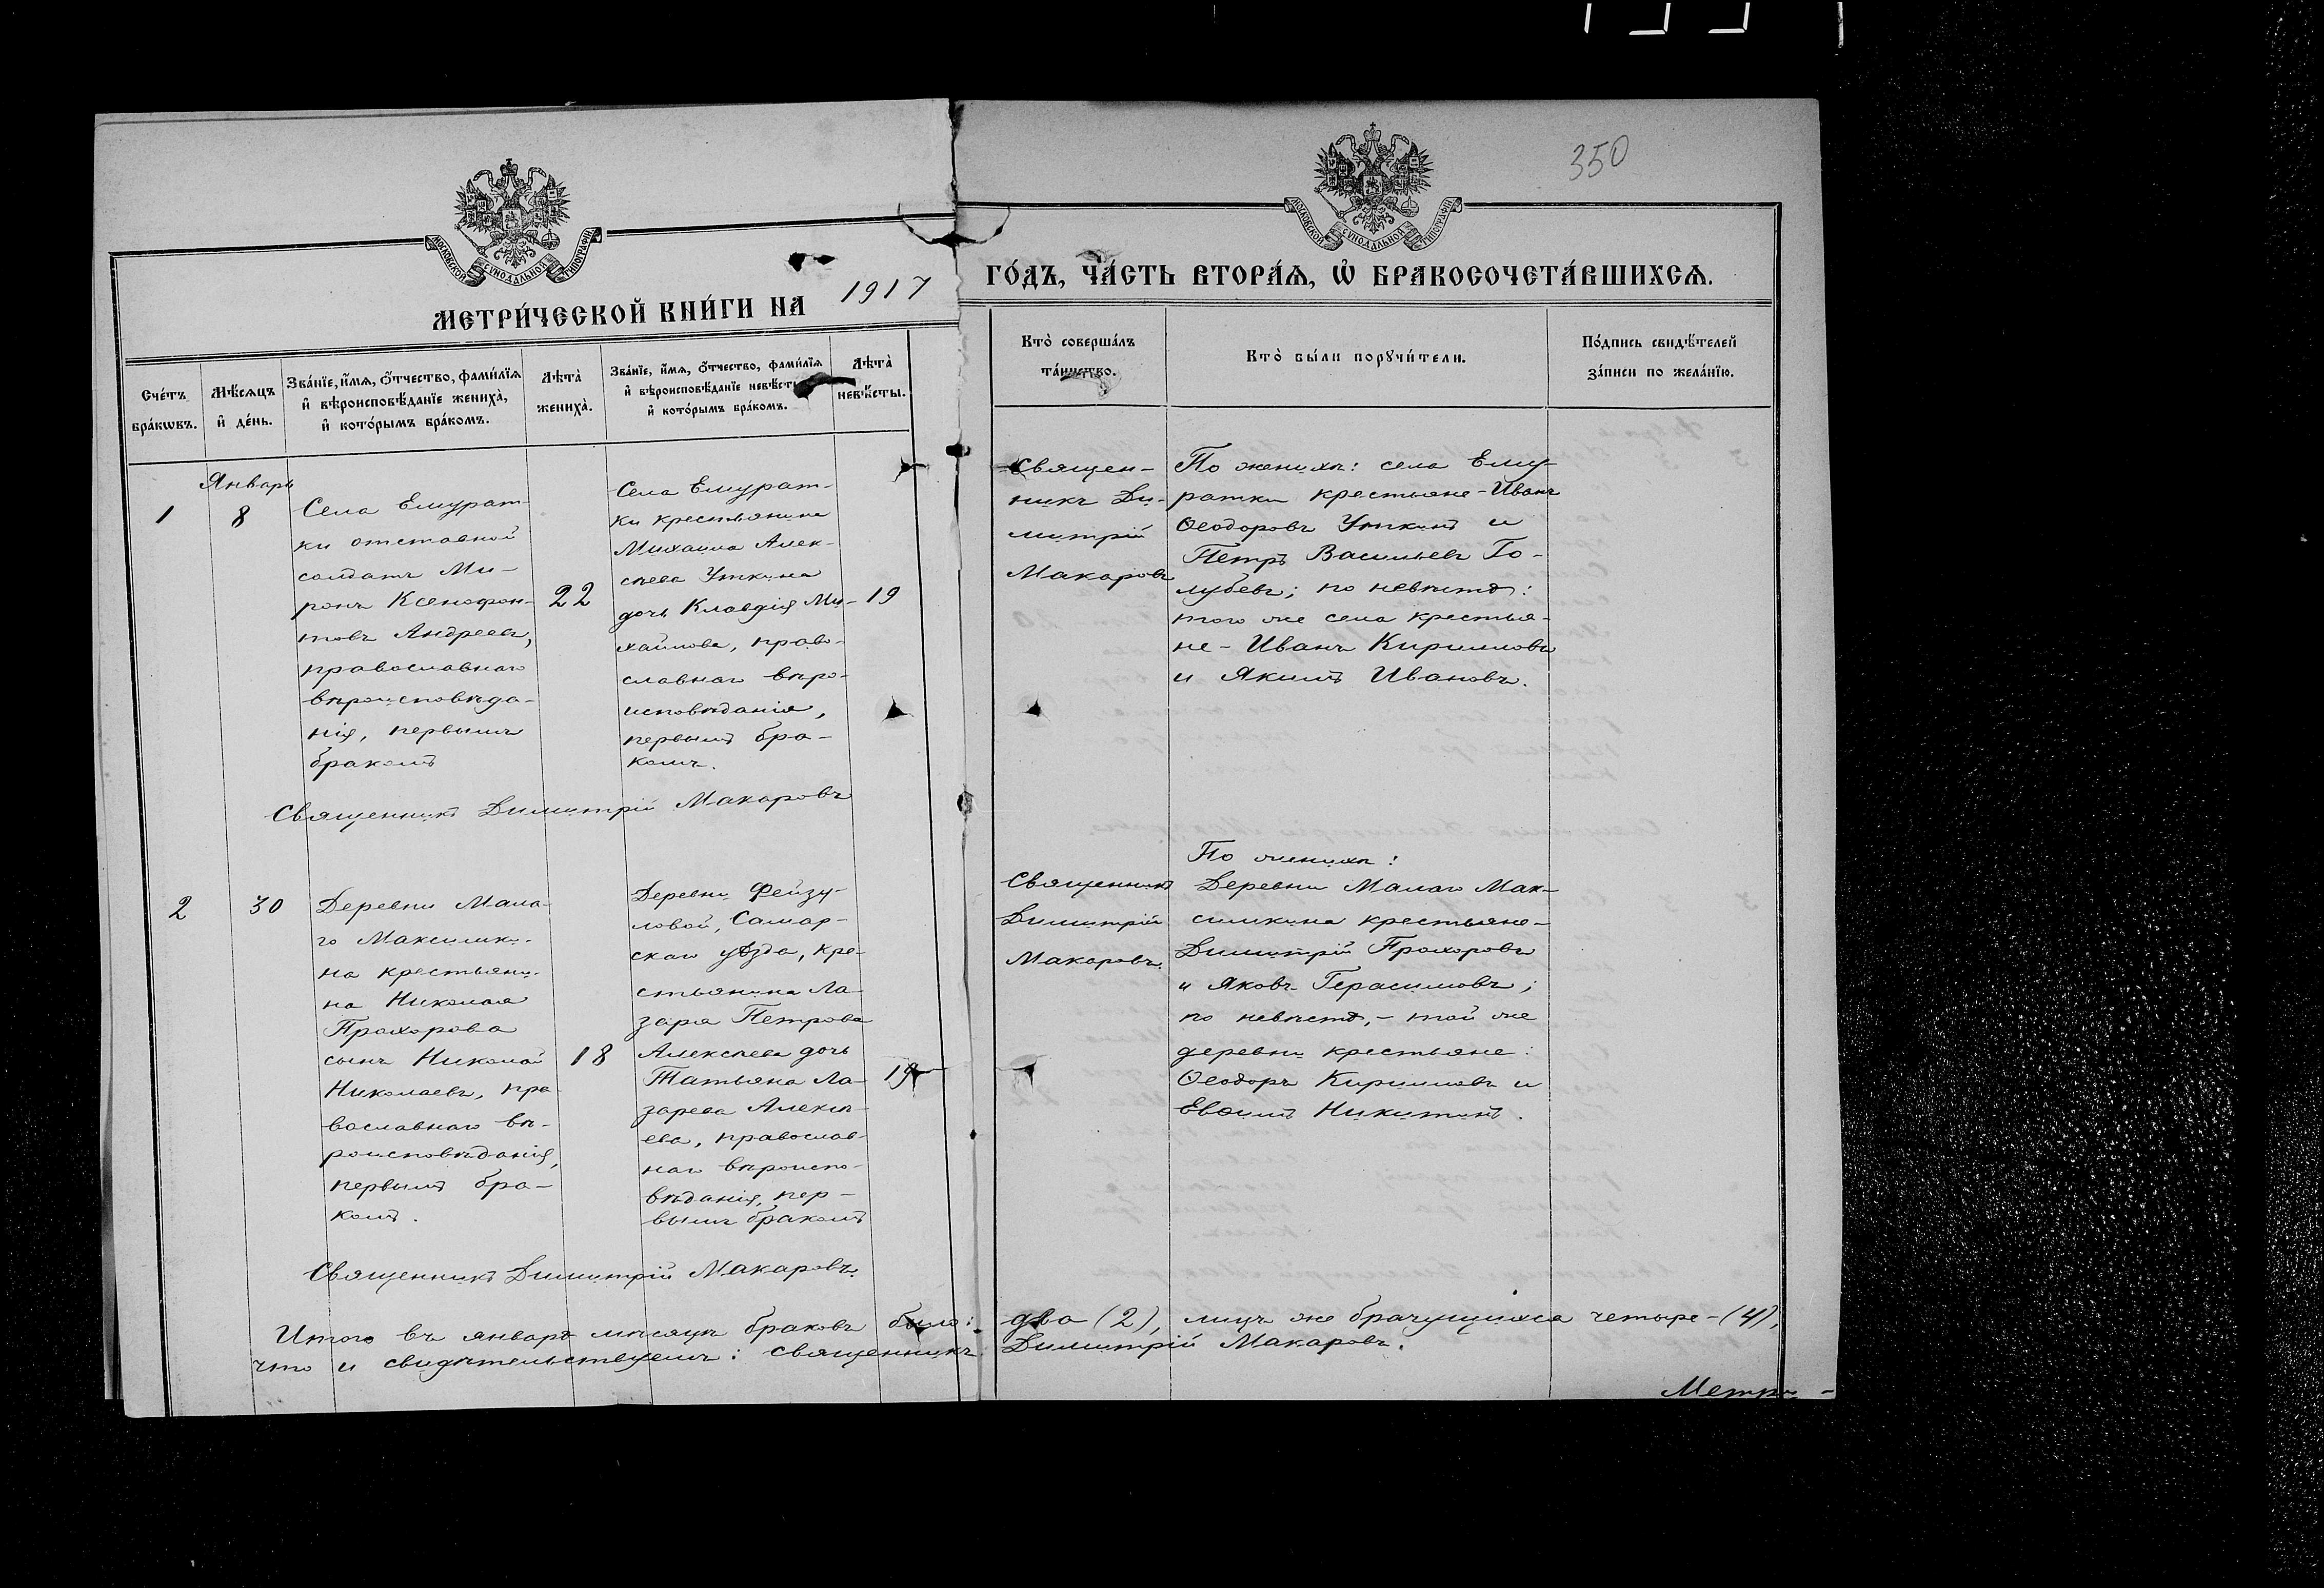 350
МОСКОВСКОЙ СѴНОДАЛЬНОЙ ТИПОГРАФІИ
МОСКОВСКОЙ СѴНОДАЛЬНОЙ ТИПОГРАФІИ
МЕТРИ́ЧЕСКОЙ КНИ́ГИ НА 1917
ГО́ДЪ, ЧА́СТЬ ВТОРА́Я, Ѡ҆ БРАКОСОЧЕТА́ВШИХСѦ.
Сче́тъ
бра́кѡвъ.
Мѣ́сѧцъ
и҆ де́нь.
Зва́нїе, и҆́мѧ, ѻ҆́тчество, фами́лїѧ
и҆ вѣроисповѣ́данїе жениха̀,
и҆ кото́рымъ бра́комъ.
Лѣта̀
жениха̀.
Зва́нїе, и҆́мѧ, ѻ҆́тчество, фами́лїѧ
и҆ вѣроисповѣ́данїе невѣ́сты
и҆ кото́рымъ бра́комъ.
Лѣта̀
невѣ́сты.
Кто̀ соверша́лъ
та́инство.
Кто̀ бы́ли порꙋчи́тели.
По́дпись свидѣ́телей
за́писи по жела́нїю.
Январь
1
8
Села Емурат-
ки отставной
солдатъ Ми-
ронъ Ксенофон-
товъ Андреевъ,
православнаго
вѣроисповѣда-
нія, первымъ
бракомъ
22
Села Емурат-
ки крестьянина
Михаила Алек-
сѣева Уткина
дочь Клавдія Ми-
хайлова, право-
славнаго вѣро-
исповѣданія,
первымъ бра-
комъ.
19
Священ-
никъ Ди-
митрій
Макаровъ
По женихѣ: села Ему-
ратки крестьяне - Иванъ
Ѳеодоровъ Уткинъ и
Петръ Васильевъ Го-
лубевъ; по невѣстѣ:
того же села крестья-
не - Иванъ Кирилловъ
и Якимъ Ивановъ.
Священникъ Димитрій Макаровъ
2
30
Деревни Мала-
го Максимки-
на крестьяни-
на Николая
Прохорова
сынъ Николай
Николаевъ, пра-
вославнаго вѣ-
роисповѣданія,
первымъ бра-
комъ.
18
Деревни Фейзу-
ловой, Самар-
скаго уѣзда, кре-
стьянина Ла-
заря Петрова
Алексѣева дочь
Татьяна Ла-
зарева Алексѣ-
ева, православ-
наго вѣроиспо-
вѣданія, пер-
вымъ бракомъ
19
Священникъ
Димитрій
Макаровъ.
По женихѣ:
Деревни Малаго Мак-
симкина крестьяне -
Димитрій Прохоровъ
и Яковъ Герасимовъ;
по невѣстѣ, - той же
деревни крестьяне:
Ѳеодоръ Кирилловъ и
Евѳимъ Никитинъ.
Священникъ Димитрій Макаровъ.
Итого въ январѣ мѣсяцѣ браковъ было: два (2), лицъ же брачущихся четыре - (4),
что и свидѣтельствуемъ: священникъ Димитрій Макаровъ.
Метри-